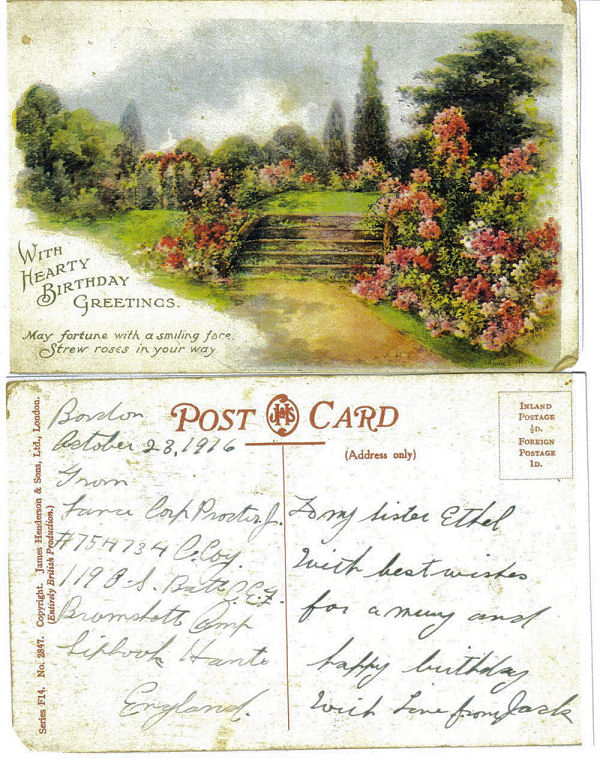 WITH
HEARTY
BIRTHDAY
GREETINGS.
May fortune with a smiling face,
Strew roses in your way
POST CARD
(Address only)
INLAND
POSTAGE
½D.
FOREIGN
POSTAGE
1D.
Series F14. No. 2847. Copyright. James Henderson & Sons, Ltd., London.
(Entirely British Production.)
October 28, 1916
From
Lance Corp Procter J.
#754734 C. Coy.
119 O.S. Batt C.E.F.
Bramshott Camp
Liphook Hants
England.
To my sister Ethel
With best wishes
for a merry and
happy birthday
With Love from Jack